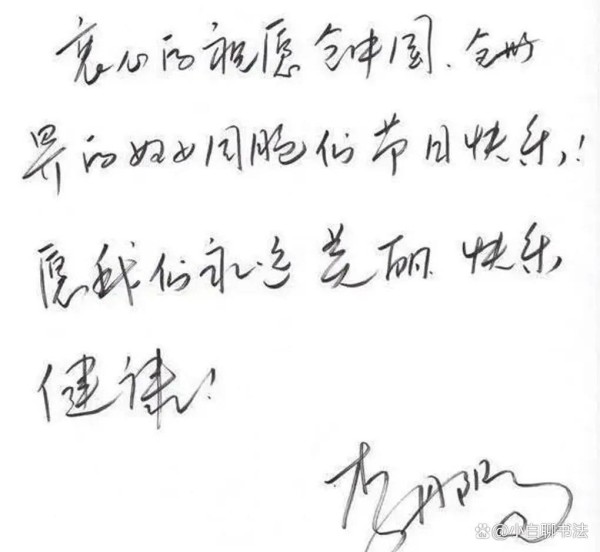 衷心的祝愿全中国、全世
界的妇女同胞们节日快乐！
愿我们永远美丽 快乐
健康！
李丹阳
@小白聊书法